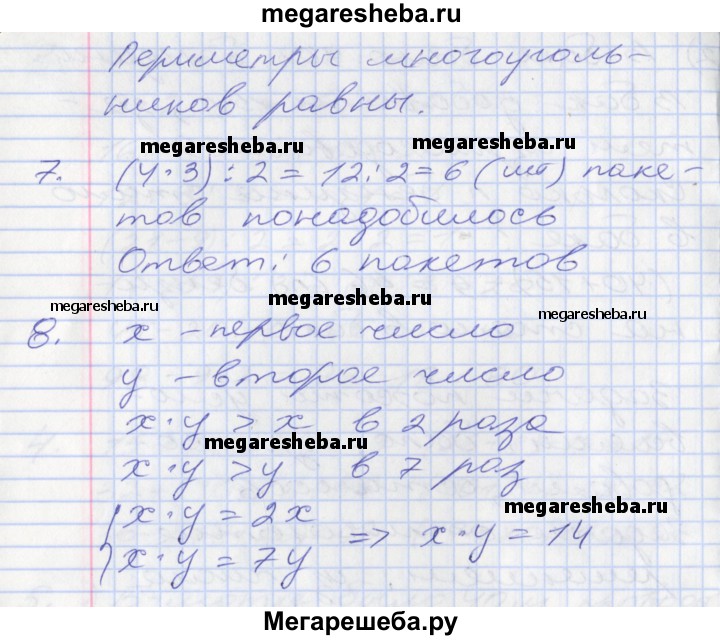 megaresheba.ru
Периметры многоуголь-
ников равны.
megaresheba.ru megaresheba.ru
7. (4·3):2=12:2=6 (шт) паке-
тов понадобилось
Ответ: 6 пакетов
megaresheba.ru megaresheba.ru megaresheba.ru
8. x – первое число
y – второе число
x·y > x в 2 раза
megaresheba.ru
x·y > y в 7 раз
megaresheba.ru
{ x·y = 2x
x·y = 7y => x·y = 14
Мегарешеба.ру